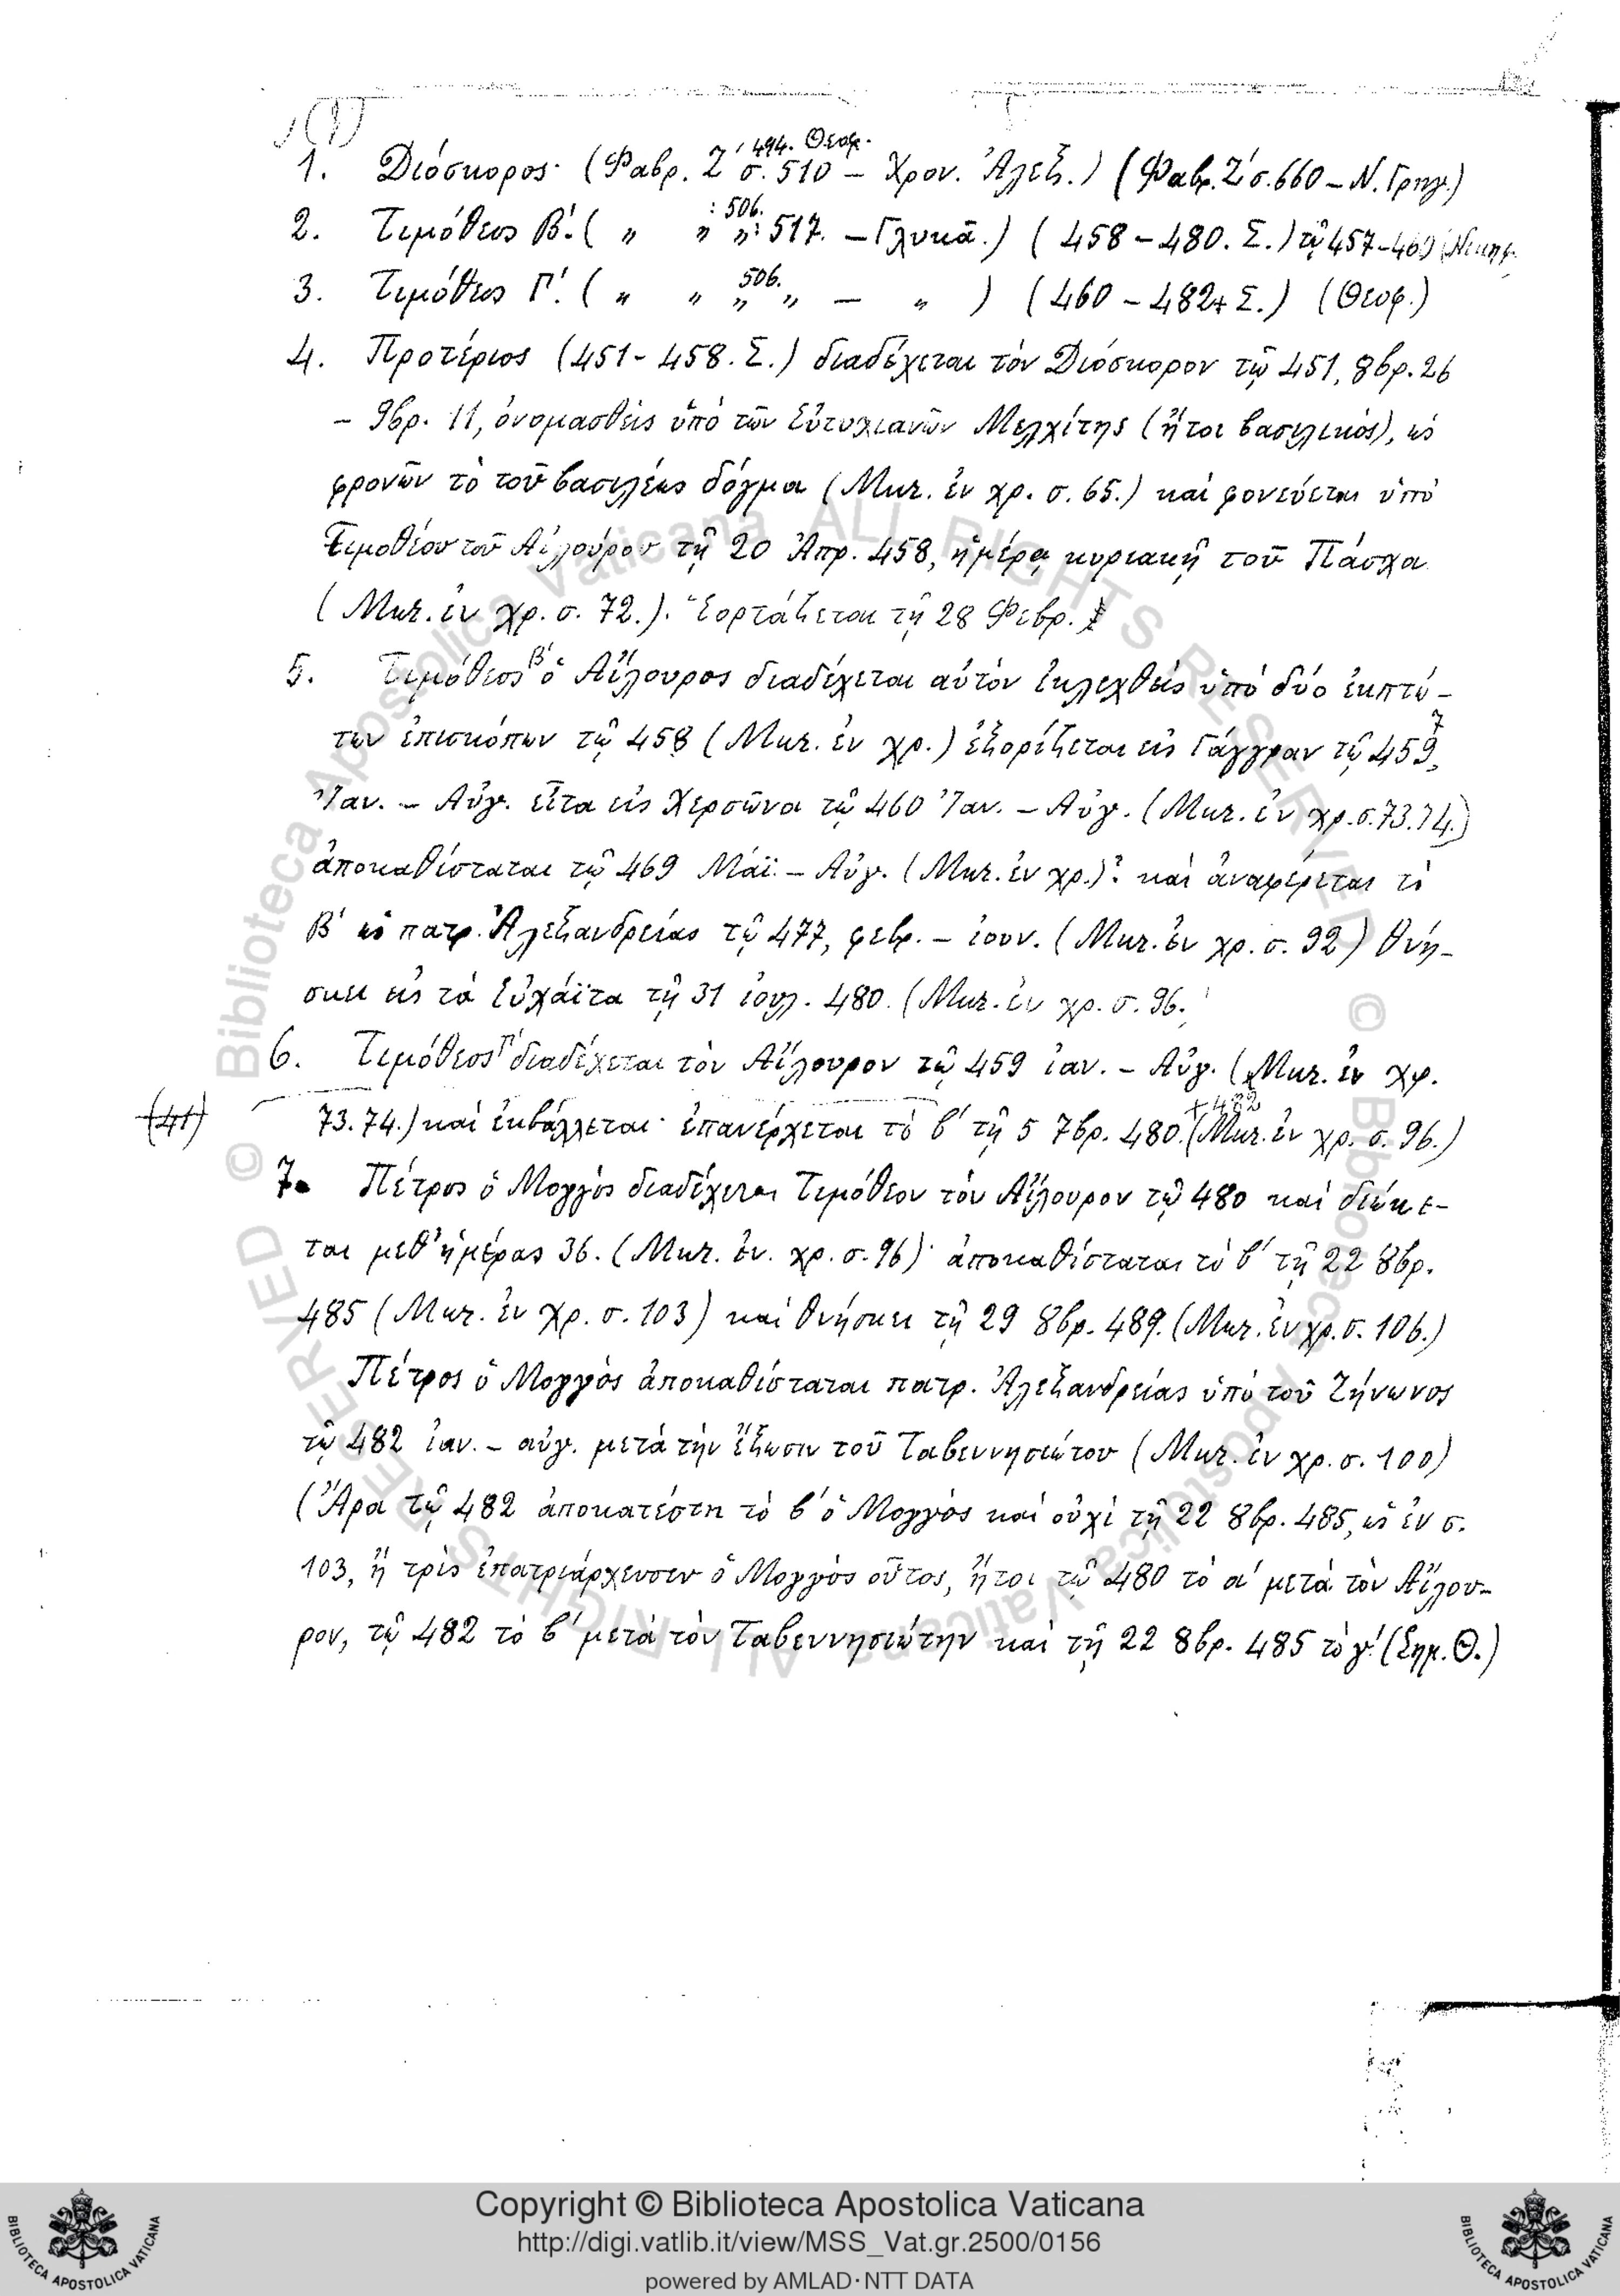 (1)
1. Διόσκορος (Φαβρ. Ζ΄ σ. 510 – Χρον. Ἀλεξ.) (Φαβρ. Ζ΄ σ. 660 – Ν. Γρηγ.)
494. Θεοφ.
2. Τιμόθεος Β΄. ( „ „ „: 517. – Γλυκᾶ.) (458 – 480. Σ.) τῷ 457–460 (Νικηφ.
: 506.
3. Τιμόθεος Γ΄. ( „ „ „ „ – „ ) (460 – 482+ Σ.) (Θεοφ.)
506.
4. Προτέριος (451 - 458. Σ.) διαδέχεται τὸν Διόσκορον τῷ 451, 8βρ. 26
– 9βρ. 11, ὀνομασθεὶς ὑπὸ τῶν Εὐτυχιανῶν Μελχίτης (ἤτοι βασιλικός), ὡς
φρονῶν τὸ τοῦ βασιλέως δόγμα (Μικ. ἐν χρ. σ. 65.) καὶ φονεύεται ὑπὸ
Τιμοθέου τοῦ Αἰλούρου τῇ 20 Ἀπρ. 458, ἡμέρᾳ κυριακῇ τοῦ Πάσχα
(Μικ. ἐν χρ. σ. 72.). Ἑορτάζεται τῇ 28 Φεβρ.
5. Τιμόθεος Β΄ ὁ Αἴλουρος διαδέχεται αὐτὸν ἐκλεχθεὶς ὑπὸ δύο ἐκπτώ-
των ἐπισκόπων τῷ 458 (Μικ. ἐν χρ.) ἐξορίζεται εἰς Γάγγραν τῷ 459,
7
Ἰαν. – Αὐγ. εἶτα εἰς Χερσῶνα τῷ 460 Ἰαν. – Αὐγ. (Μικ. ἐν χρ. σ. 73. 74.)
ἀποκαθίσταται τῷ 469 Μάϊ. – Αὐγ. (Μικ. ἐν χρ.) καὶ ἀναφέρεται τὸ
Β΄ ὡς πατρ. Ἀλεξανδρείας τῷ 477, φεβρ. – ἰουν. (Μικ. ἐν χρ. σ. 92) θνή-
σκει εἰς τὰ Εὐχάϊτα τῇ 31 ἰουλ. 480. (Μικ. ἐν χρ. σ. 96.
6. Τιμόθεος Γ΄ διαδέχεται τὸν Αἴλουρον τῷ 459 ἰαν. – Αὐγ. (Μικ. ἐν χρ.
(41)
73. 74.) καὶ ἐκβάλλεται· ἐπανέρχεται τὸ β΄ τῇ 5 7βρ. 480. (Μικ. ἐν χρ. σ. 96.)
+ 482
7. Πέτρος ὁ Μογγὸς διαδέχεται Τιμόθεον τὸν Αἴλουρον τῷ 480 καὶ διώκε-
ται μεθ' ἡμέρας 36. (Μικ. ἐν. χρ. σ. 96)· ἀποκαθίσταται τὸ β΄ τῇ 22 8βρ.
485 (Μικ. ἐν χρ. σ. 103) καὶ θνήσκει τῇ 29 8βρ. 489. (Μικ. ἐν χρ. σ. 106.)
Πέτρος ὁ Μογγὸς ἀποκαθίσταται πατρ. Ἀλεξανδρείας ὑπὸ τοῦ Ζήνωνος
τῷ 482 ἰαν. – αὐγ. μετὰ τὴν ἔξωσιν τοῦ Ταβεννησιώτου (Μικ. ἐν χρ. σ. 100)
(Ἄρα τῷ 482 ἀποκατέστη τὸ β΄ ὁ Μογγὸς καὶ οὐχὶ τῇ 22 8βρ. 485, ὡς ἐν σ.
103, ἢ τρὶς ἐπατριάρχευσεν ὁ Μογγὸς οὗτος, ἤτοι τῷ 480 τὸ α΄ μετὰ τὸν Αἴλου-
ρον, τῷ 482 τὸ β΄ μετὰ τὸν Ταβεννησιώτην καὶ τῇ 22 8βρ. 485 τὸ γ΄ (Σημ. Θ.)
© Biblioteca Apostolica Vaticana ALL RIGHTS RESERVED
© Biblioteca Apostolica Vaticana ALL RIGHTS RESERVED
Copyright © Biblioteca Apostolica Vaticana
http://digi.vatlib.it/view/MSS_Vat.gr.2500/0156
powered by AMLAD·NTT DATA
BIBLIOTECA APOSTOLICA VATICANA
BIBLIOTECA APOSTOLICA VATICANA